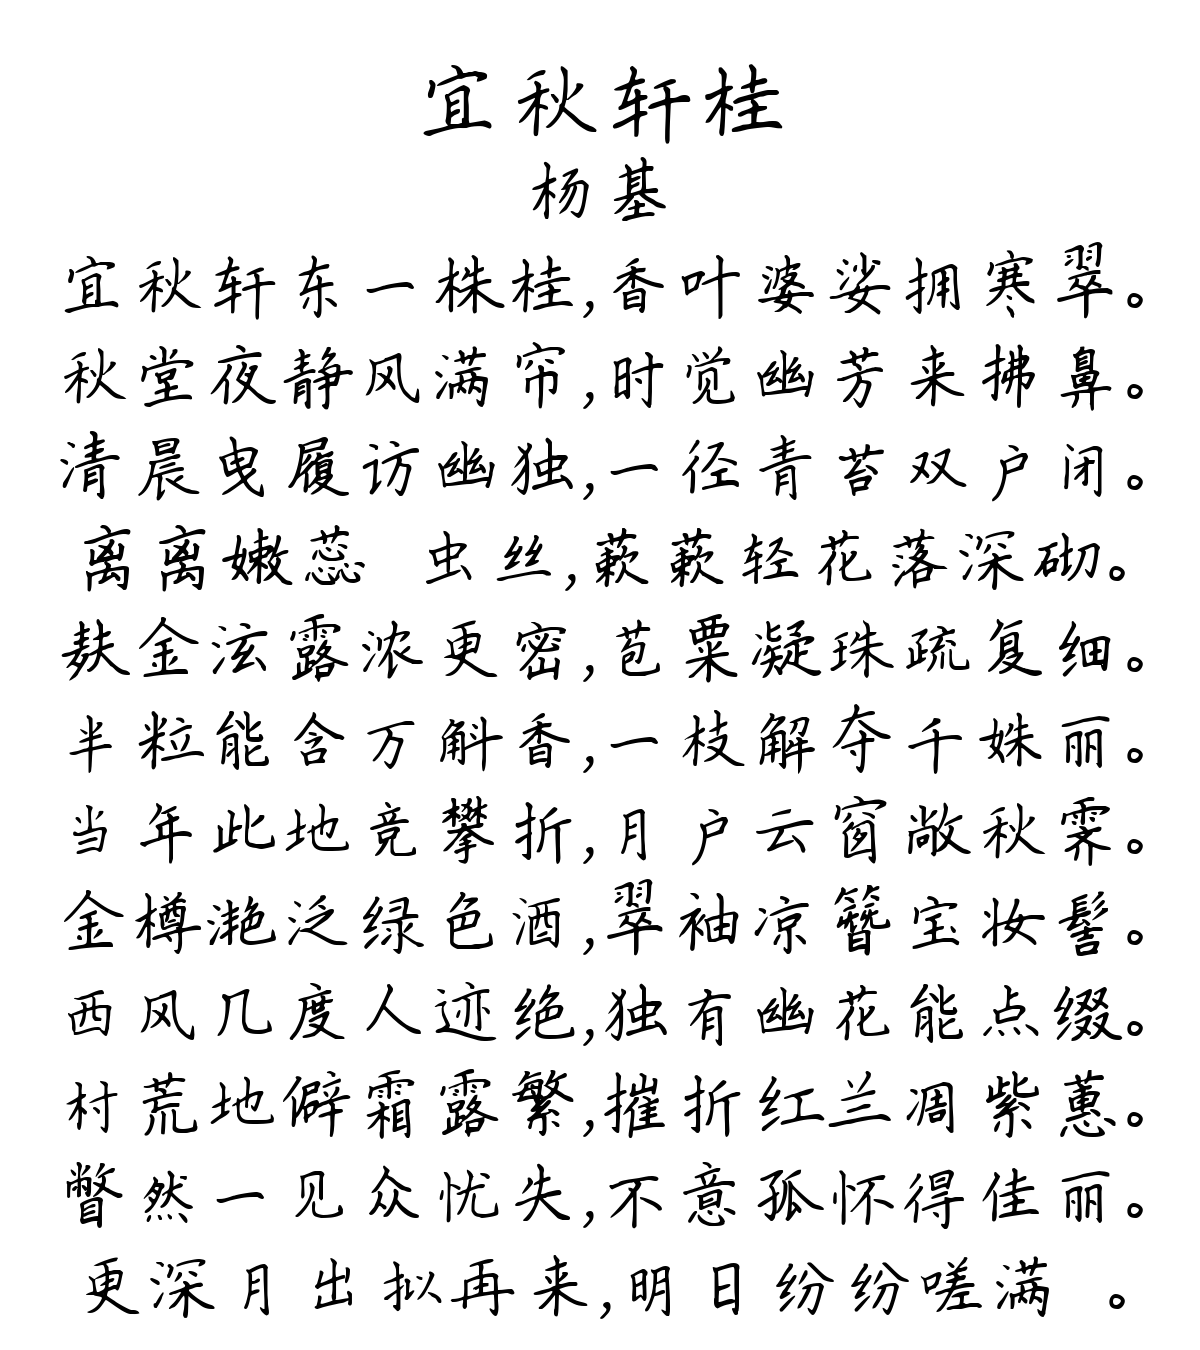 宜秋轩桂
杨基
宜秋轩东一株桂,香叶婆娑拥寒翠。
秋堂夜静风满帘,时觉幽芳来拂鼻。
清晨曳履访幽独,一径青苔双户闭。
离离嫩蕊 虫丝,蔌蔌轻花落深砌。
麸金泫露浓更密,苞粟凝珠疏复细。
半粒能含万斛香,一枝解夺千姝丽。
当年此地竞攀折,月户云窗敞秋霁。
金樽滟泛绿色酒,翠袖凉簪宝妆髻。
西风几度人迹绝,独有幽花能点缀。
村荒地僻霜露繁,摧折红兰凋紫蕙。
瞥然一见众忧失,不意孤怀得佳丽。
更深月出拟再来,明日纷纷嗟满 。